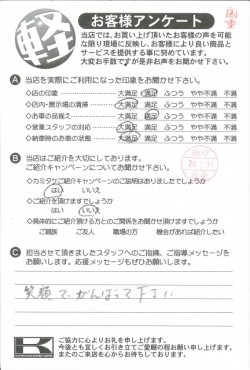 軽
お客様アンケート
当店では、お買い上げ頂いたお客様の声を可能
な限り現場に反映し、お客様により良い商品と
サービスを提供する事に努めています。
大変お手数ですが是非お声をお聞かせ下さい。
A 当店を実際にご利用になった印象をお聞かせ下さい。
◇店の印象 大満足 満足 ふつう やや不満 不満
◇店内・展示場の清掃 大満足 満足 ふつう やや不満 不満
◇お車の品揃え 大満足 満足 ふつう やや不満 不満
◇営業スタッフの対応 大満足 満足 ふつう やや不満 不満
◇納車時のお車の状態 大満足 満足 ふつう やや不満 不満
B 当店はご紹介を大切にしております。
ご紹介キャンペーンについてお聞かせ下さい。
◇カミタケご紹介キャンペーンのご説明はありましたでしょうか
はい いいえ
◇ご紹介頂けますでしょうか
はい いいえ
◇具体的にご紹介頂ける方とのご関係をお聞かせ頂けますでしょうか
ご親族 ご友人 職場の方 機会があれば紹介したい
C 担当させて頂きましたスタッフへのご指摘、ご指導メッセージを
お願いします。応援メッセージもぜひお願いします。
笑顔でがんばって下さい
K
ご協力に心よりお礼を申し上げます。
今後とも宜しくお引き立てご愛顧の程お願い申し上げます。
またのご来店を心からお待ちしております。